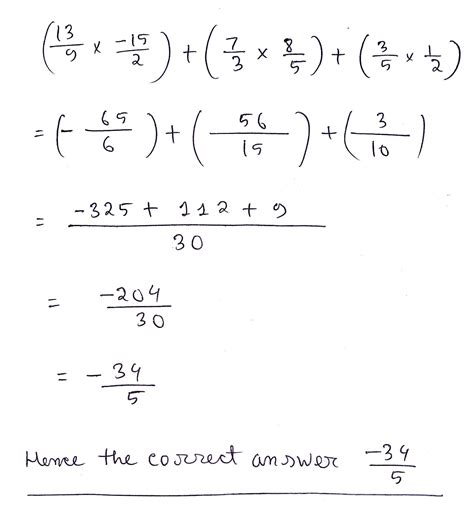 (13/9 × -15/2) + (7/3 × 8/5) + (3/5 × 1/2)
= (- 65/6) + (56/15) + (3/10)
= -325 + 112 + 9 / 30
= -204/30
= - 34/5
Hence the correct answer -34/5